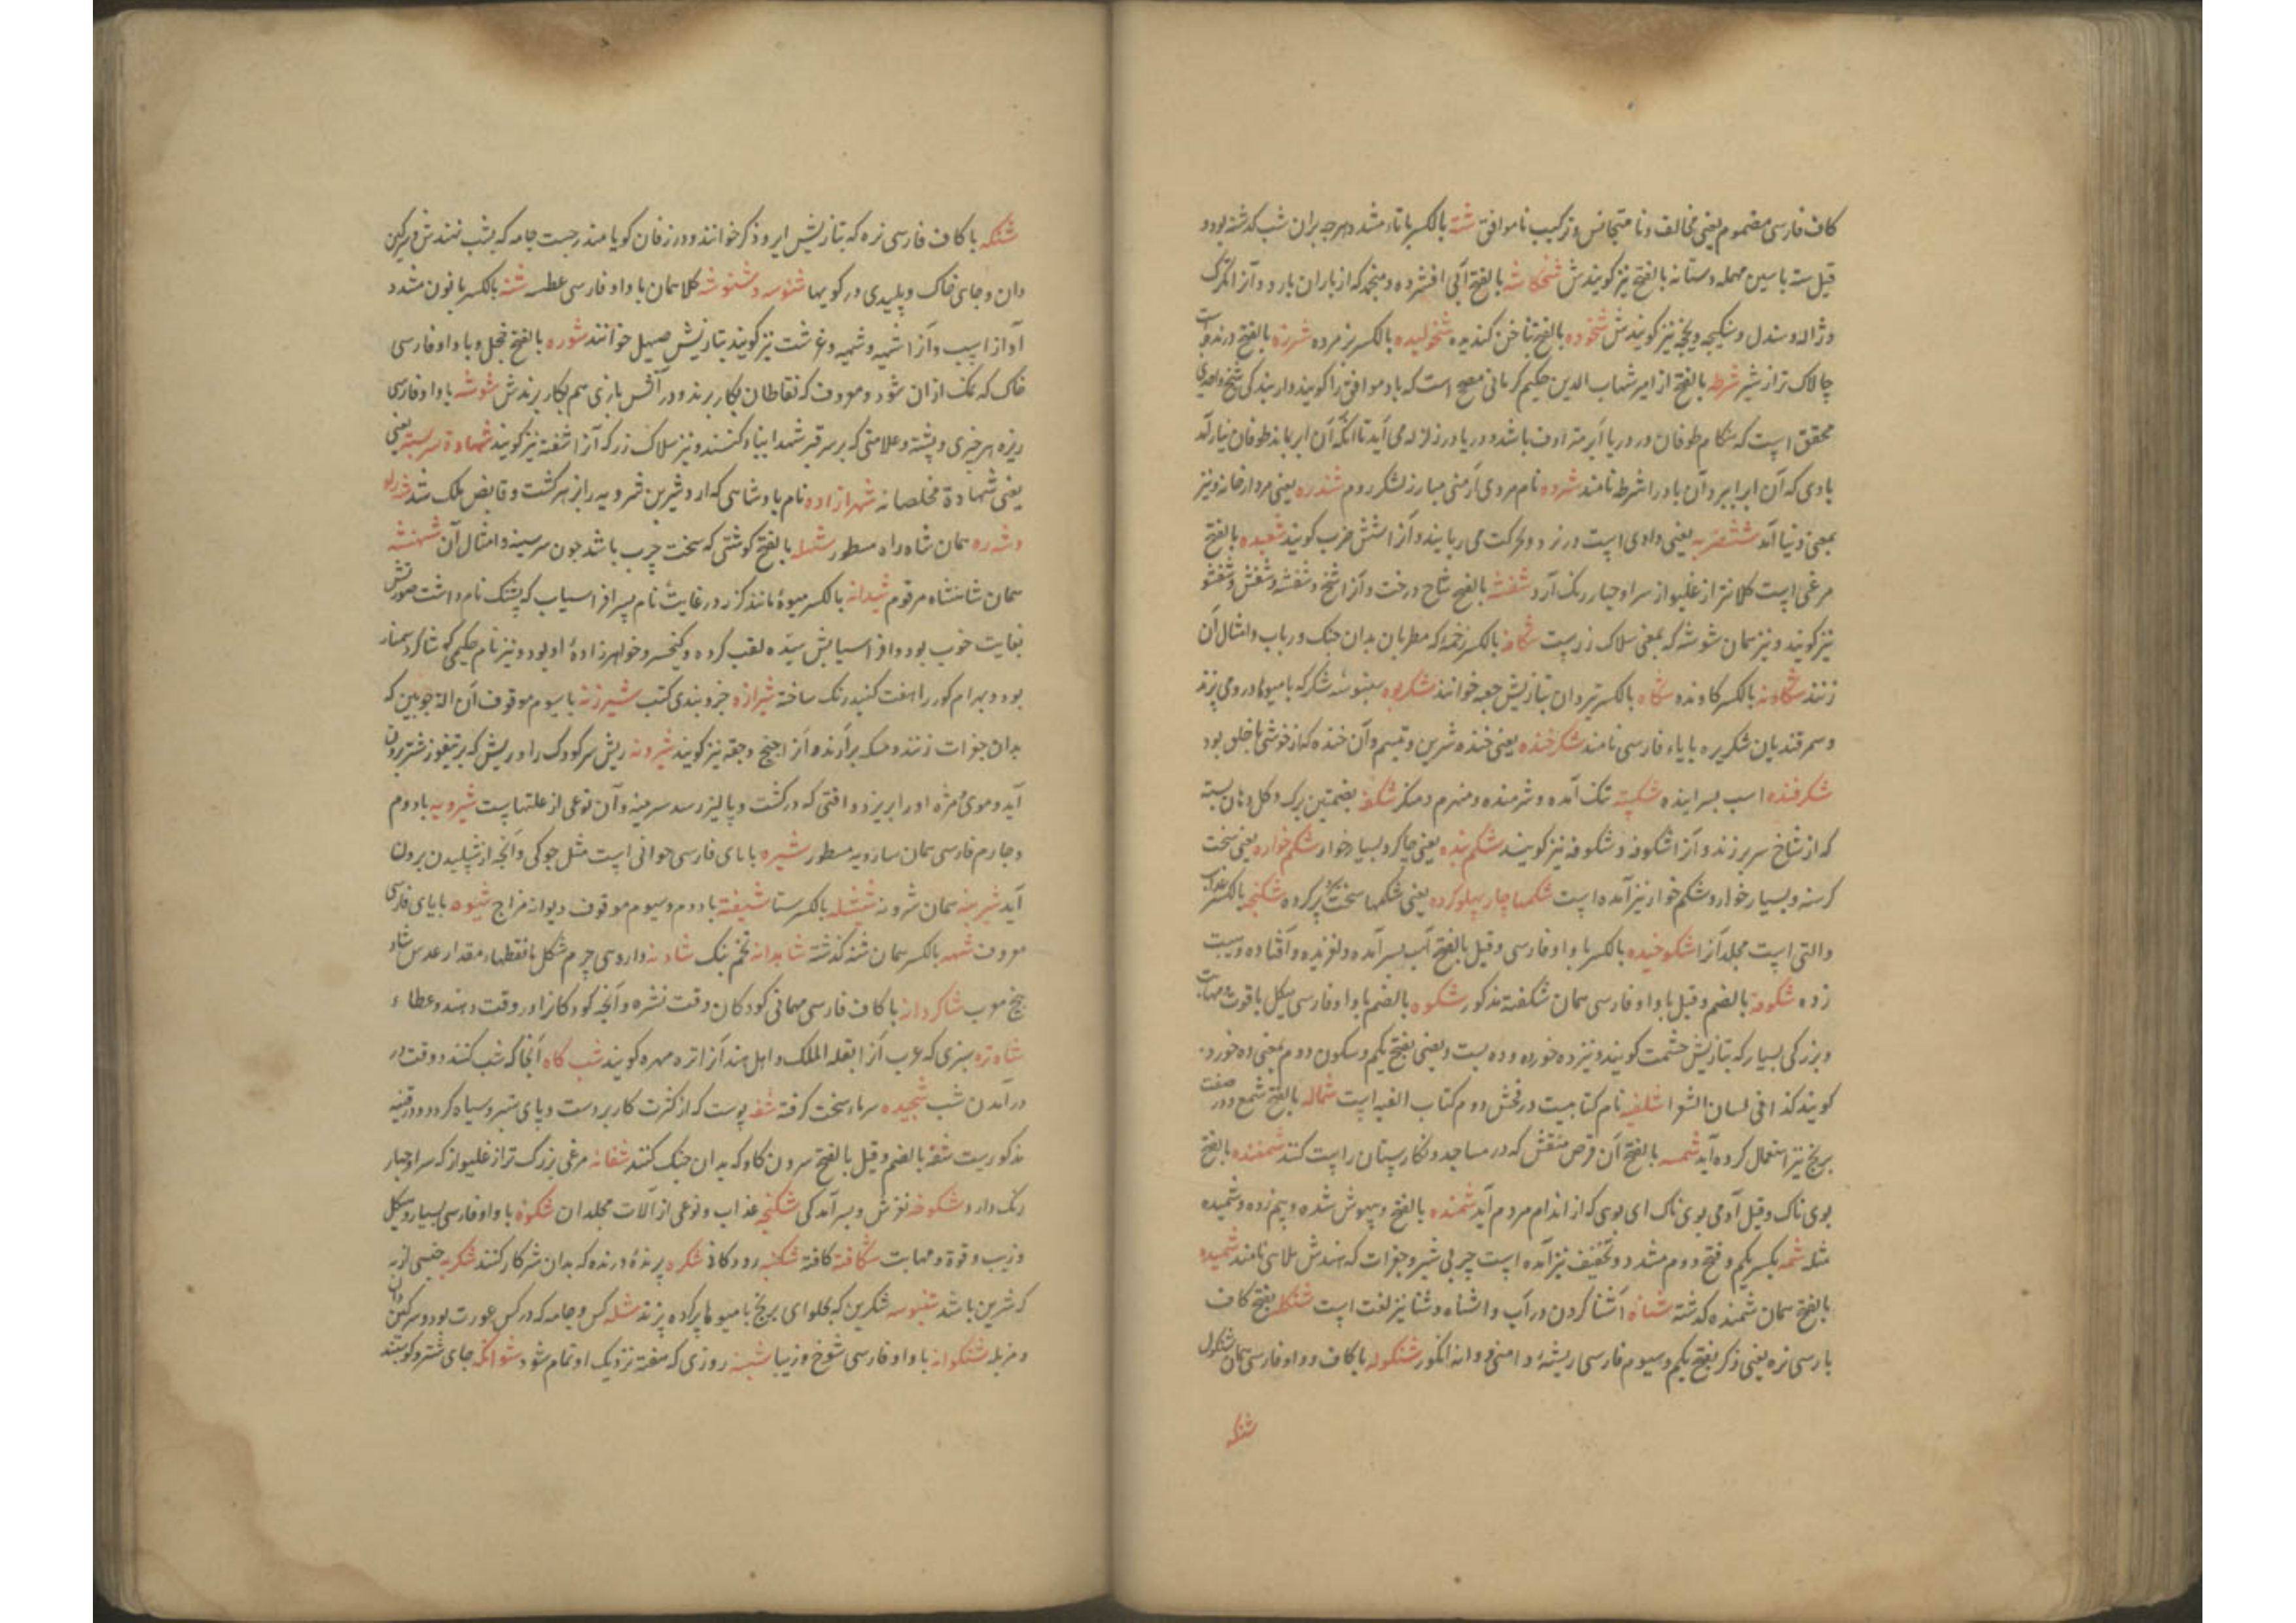 کاف فارسی مضموم یعنی مخالف و نا متجانس و ترکیب ناموافق شته بالکسر با تاء مشدد هرچه بران شب گذشته بود و
قیل سته با سین مهمله و ستانه بالفتح نیز کویندش شخکاشه بالفتح آبی افشرده و منجمد که از باران بارد و آنرا تگرگ
و ژاله و سندل و سنکیچه و یخچه نیز کویندش شخوده بالفتح بناخن کنده شخولیده بالکسر پژمرده شرزه بالفتح درنده
چالاک تر از شیر شرطه بالفتح از امیر شهاب الدین حکیم کرمانی مصحح است که باد موافق را کویند
محقق است که هنکام طوفان در دریا ابر متراوف باشد و دریا در زلزله می آید تا آنکه آن ابر بماند طوفان نیارامد
بادی که آن ابر ببرد آن باد را شرطه نامند شروه نام مردی ارمنی مبارز لشکر روم شندره یعنی مردار خانه و نیز
بمعنی دنیا آمد ششضربه یعنی داوی است در نرد و آنرا شش ضرب کویند شعبده بالفتح
مرغی است کلانتر از غلیواز سر او چهار رنک آرد شفشه بالفتح شاخ درخت و آنرا شخ و شفشه و شفش و شفشو
نیز کویند و نیز همان شوشه که بمعنی سلاک زر است شکافه بالکسر زخمه که مطربان بدان چنک و رباب و امثال آن
زنند شکاونه بالکسر کاونده شکاه بالکسر تیردان بتازیش جعبه خوانند شکربوره سنبوسه شکر که با میوها درو می پزند
و سمرقندیان شکربیره با یاء فارسی نامند شکرخنده یعنی خنده شیرین و تبسم و آن خنده که از خوشی باطن بود
شکرفنده اسب بسر آینده شکسته تنک آمده و شرمنده و منهزم و منکر شکفه بضمتین برک و کل دهان بسته
که از شاخ سر بر زند و آنرا اشکوفه و شکوفه نیز کویند شکم بنده یعنی چاکر و بسیار خوار شکم خواره یعنی سخت
کرسنه و بسیار خوار و شکم خوار نیز آمده است شکمها چارپهلو کرده یعنی شکمها سخت پر کرده شکنجه بالکسر عذاب
والتی است مجلد آنرا شکوخیده بالکسر با واو فارسی و قیل بالفتح آب بسر آمده و لغزیده و افتاده و سیب
زده شکوفه بالضم و قیل با واو فارسی همان شکفته مذکور شکوه بالضم با واو فارسی هیکل با قوت و مهابت
و بزرکی بسیار که بتازیش حشمت کویند و نیز ده خورده و ده بست و یعنی بفتح یکم و سکون دوم بمعنی ده خورد
کویند کذا فی لسان الشعرا شلفیه نام کتابیست در فحش دوم کتاب الفیه است شماله بالفتح شمع و در صفت
برنج نیز استعمال کرده آید شمسه بالفتح آن قرص منقش که در مساجد و نکارستان راست کنند شمغنده بالفتح
بوی ناک و قیل آدمی بوی ناک ای بوی که از اندام مردم آید شمنده بالفتح و بیهوش شده و بیم زده و شمیده
مثله شمه بکسر یکم و فتح دوم مشدد و تخفیف نیز آمده است چربی شیر و جغرات که هندش ملائی نامند شمیده
بالفتح همان شمنده کذشته شناه آشنا کردن در آب و اشناه و شنا نیز لغت است شنکله بفتح کاف
پارسی نره یعنی ذکر بفتح یکم و سیوم فارسی ریشه دامنی و دانه انکور شنکوله با کاف و واو فارسی همان شنکول
شنکه
شنکه با کاف فارسی نره که بتازیش ایر و ذکر خوانند و در زفان کویا جامه که بشب نهندش و سرکین
دان و جای خاک و پلیدی در کویها شنوسه و شنوشه کلاهمان با واو فارسی عطسه شنه بالکسر با نون مشدد
آواز اسپ و آنرا شیهه و شمیه و غرشت نیز کویند بتازیش صهیل خوانند شوره بالفتح خجل و با واو فارسی
خاک که نمک ازان شود و معروف که نفاطان بکار برند و در آتش بازی هم بکار برندش شوشه با واو فارسی
ریزه هر چیزی و پشته و علامتی که بر سر قبر شهدا بنیاد کنند و نیز سلاک زر که آنرا شفشه نیز کویند شهادة سربسته یعنی
یعنی شهادة مخلصانه شهرازاده نام بادشاهی که اردشیر بن شیرویه را زهر کشت و قابض ملک شد
و شهره همان شاه راه مسطور شهله بالفتح کوشتی که سخت چرب باشد چون سر سینه و امثال آن شهنشه
همان شاهنشاه مرقوم شیدانه بالکسر میوۀ مانند کزر در غایت نام پسر افراسیاب که پشنک نام داشت صورتش
بغایت خوب بود و افراسیابش شیده لقب کرده و کیخسرو خواهرزادۀ او بود و نیز نام حکیمی که شاکرد سمنار
بود و بهرام کور را هفت کنبد رنک ساخته شیرازه جزوبندی کتب شیرزنه با سیوم موقوف آن الة چوبین که
بدان جغرات زنند و مسکه برآرند و آنرا چنچ و جغه نیز کویند شیرونه ریش سر کودک را و ریشی که بر پتفوز شتر بیرون
آید و موی مژه او را بریزد و افتی که در کشت و پالیز رسد سرمینه و آن نوعی از علتهاست شیرویه با دوم
و چارم فارسی همان سارویه مسطور شیره با یای فارسی خوانی است مثل چوکی و آنچه از شپلیدن بر ولنا
آید شیرینه همان شیرونه ششله بالکسر ستا شیفته با دوم و سیوم موقوف دیوانه مزاج شیوه با یای فارسی
معروف شیهه بالکسر همان شنه کذشته شابدانه تخم بنک شادنه داروی چرم شکل با نقطها مقدار عدس شاد
بخ معرب شاکردانه با کاف فارسی مهمانی کودکان وقت نشره و آنچه کودکانرا در وقت دهند و عطا
شاه تره سبزی که عرب آنرا بقلة الملک و اهل هند آنرا تره مهره کویند شب کاه آنجا که شب کنند و وقت در
در آمدن شب شجیده سرماء سخت کرفته شغه پوست که از کثرت کار بر دست و پای ستبر و سیاه کردد و در قنیه
مذکور است شغه بالضم و قیل بالفتح سرون کاو که بدان جنک کنند شفانه مرغی بزرک تر از غلیواز که سر او چهار
رنک دارد شکوخه لغزش و بسر آمدکی شکنجه عذاب و نوعی از آلات مجلدان شکوه با واو فارسی بسیار هیکل
و زیب و قوة و مهابت شکافته کافته شکنبه رودکاذ شکره پرندۀ درنده که بدان شکار کنند شکریه جنسی از به
که شیرین باشد شنبوسه شکرین که بحلوای برنج با میوها پر کرده پزند شله کس و جامه که در کس عورت بود و سرکین دان
و مزبله شنکوانه با واو فارسی شوخ و زیبا شنبه روزی که هفته نزدیک او تمام شود شوانکه جای شتر و کوسفند